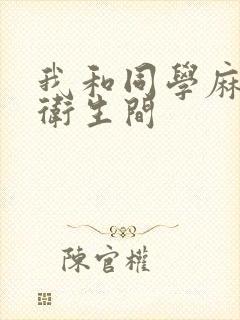 我和同學麻
衛生間
陳官權